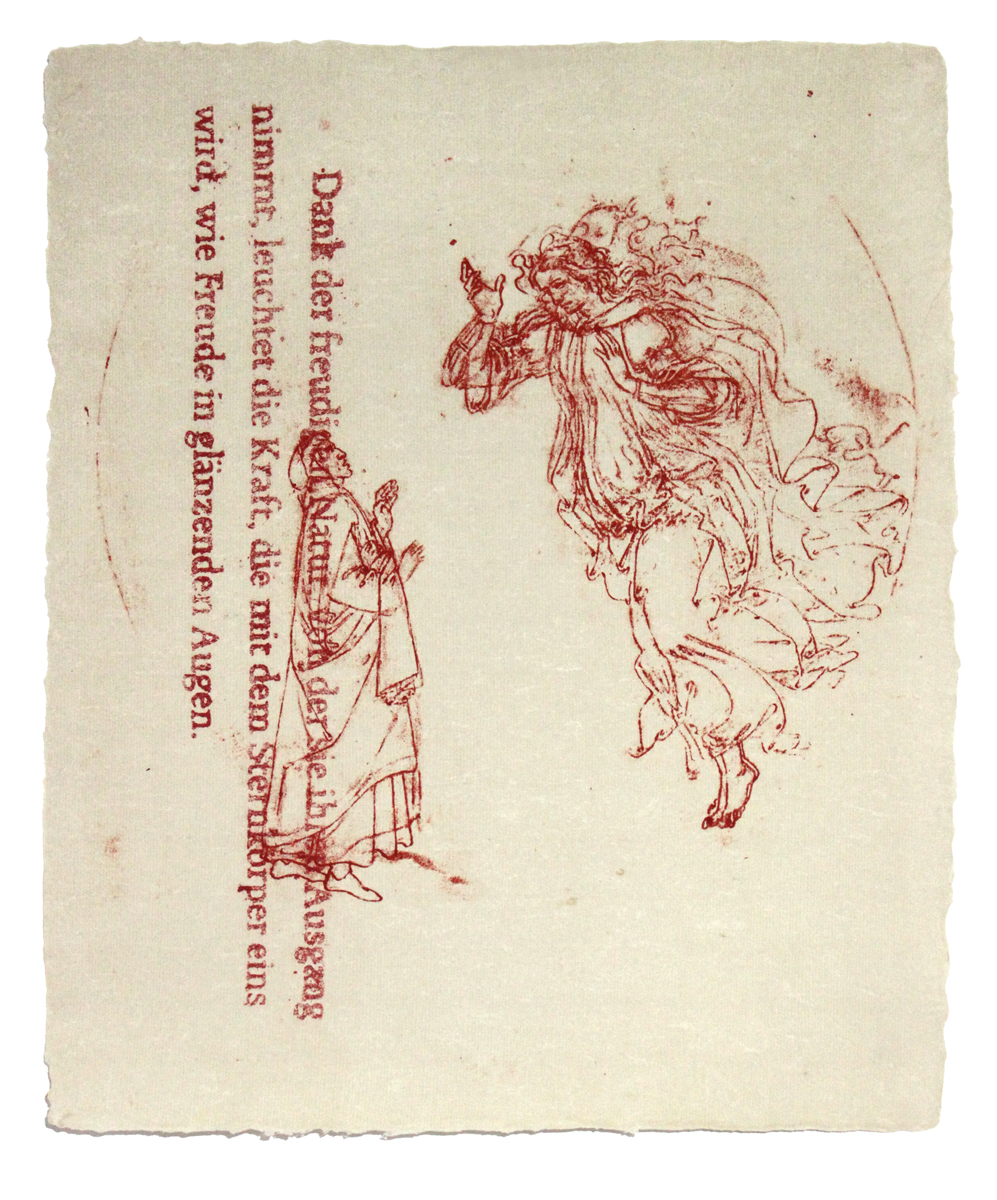 Dank der freudigen Natur von der sie ihren Ausgang
nimmt, leuchtet die Kraft, die mit dem Sternkörper eins
wird, wie Freude in glänzenden Augen.